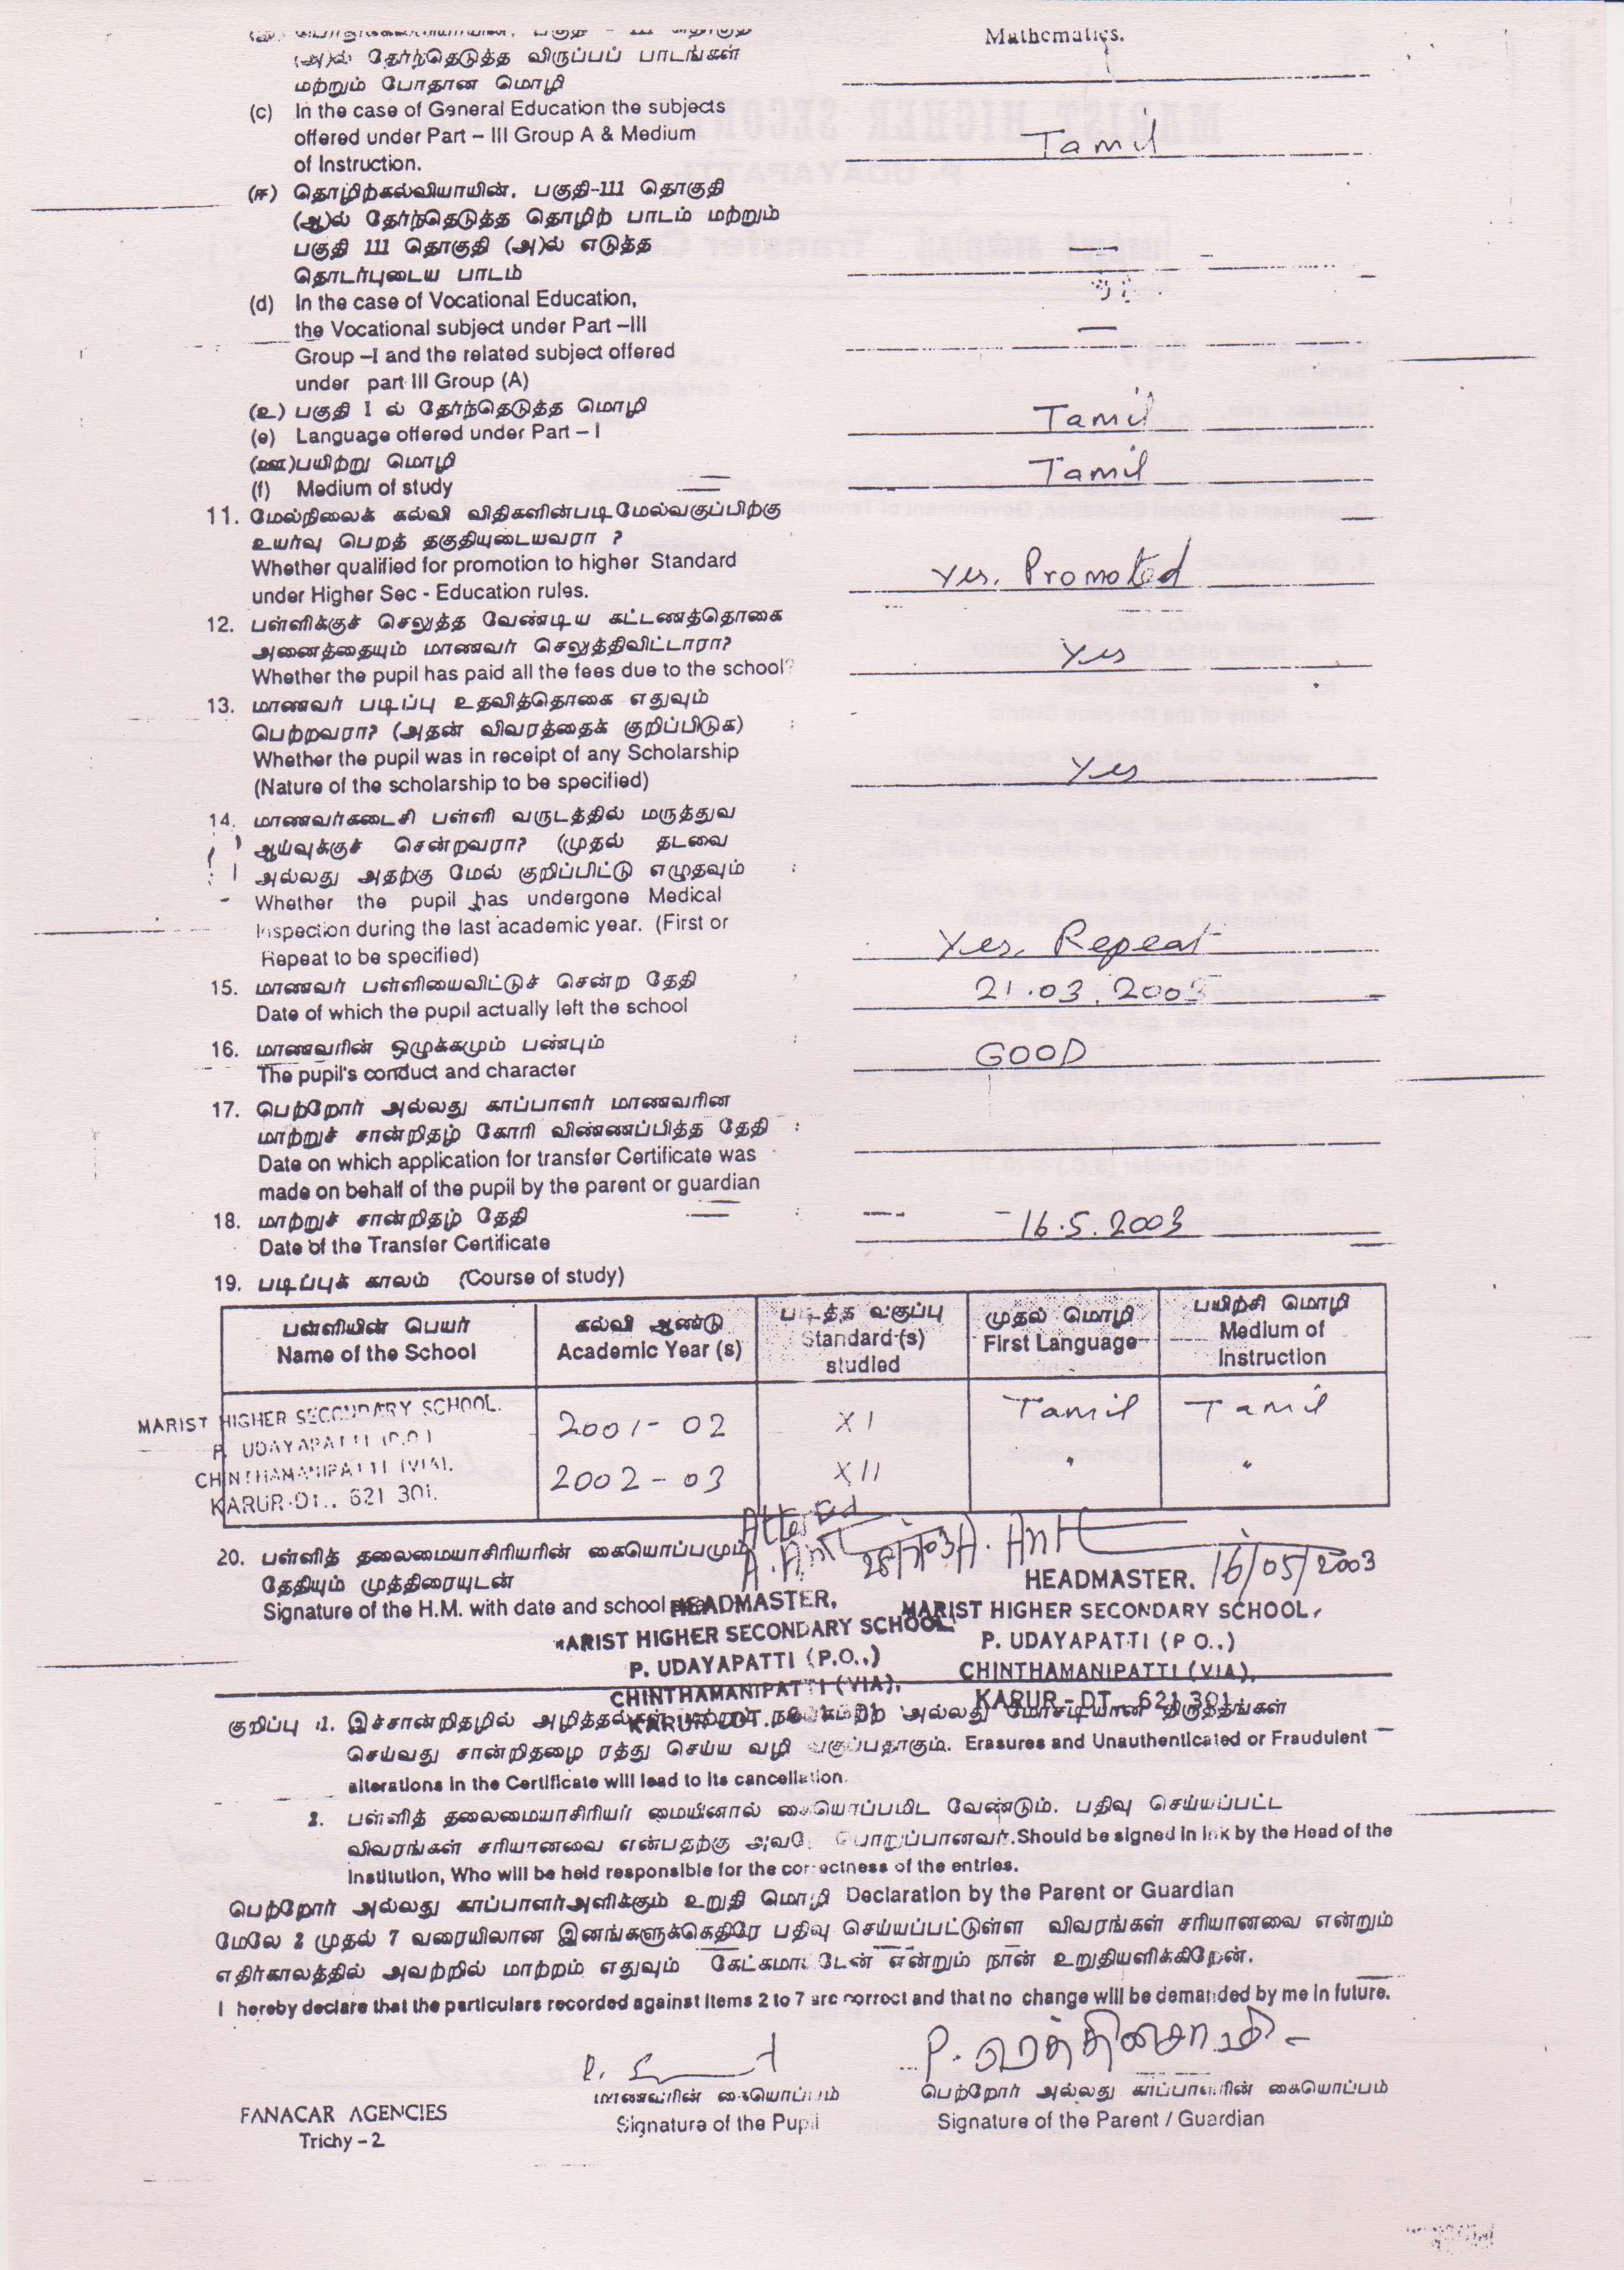 Mathematics.
(அ)ல் தேர்ந்தெடுத்த விருப்பப் பாடங்கள்
மற்றும் போதான மொழி
(c) In the case of General Education the subjects
offered under Part – III Group A & Medium
of Instruction.
Tamil
(ஈ) தொழிற்கல்வியாயின், பகுதி-111 தொகுதி
(ஆ)ல் தேர்ந்தெடுத்த தொழிற் பாடம் மற்றும்
பகுதி 111 தொகுதி (அ)ல் எடுத்த
தொடர்புடைய பாடம்
—
(d) In the case of Vocational Education,
the Vocational subject under Part –III
Group –I and the related subject offered
under part III Group (A)
—
(உ) பகுதி I ல் தேர்ந்தெடுத்த மொழி
(e) Language offered under Part – I
Tamil
(ஊ)பயிற்று மொழி
(f) Medium of study
Tamil
11. மேல்நிலைக் கல்வி விதிகளின்படி மேல்வகுப்பிற்கு
உயர்வு பெறத் தகுதியுடையவரா ?
Whether qualified for promotion to higher Standard
under Higher Sec - Education rules.
Yes. Promoted
12. பள்ளிக்குச் செலுத்த வேண்டிய கட்டணத்தொகை
அனைத்தையும் மாணவர் செலுத்திவிட்டாரா?
Whether the pupil has paid all the fees due to the school?
Yes
13. மாணவர் படிப்பு உதவித்தொகை எதுவும்
பெற்றவரா? (அதன் விவரத்தைக் குறிப்பிடுக) :
Whether the pupil was in receipt of any Scholarship
(Nature of the scholarship to be specified)
Yes
14. மாணவர்கடைசி பள்ளி வருடத்தில் மருத்துவ
ஆய்வுக்குச் சென்றவரா? (முதல் தடவை
அல்லது அதற்கு மேல் குறிப்பிட்டு எழுதவும் :
Whether the pupil has undergone Medical
Inspection during the last academic year. (First or
Repeat to be specified)
Yes. Repeat
15. மாணவர் பள்ளியைவிட்டுச் சென்ற தேதி :
Date of which the pupil actually left the school
21.03.2003
16. மாணவரின் ஒழுக்கமும் பண்பும் :
The pupil's conduct and character
GOOD
17. பெற்றோர் அல்லது காப்பாளர் மாணவரின
மாற்றுச் சான்றிதழ் கோரி விண்ணப்பித்த தேதி :
Date on which application for transfer Certificate was
made on behalf of the pupil by the parent or guardian
18. மாற்றுச் சான்றிதழ் தேதி :
Date of the Transfer Certificate
16.5.2003
19. படிப்புக் காலம் (Course of study)
பள்ளியின் பெயர் கல்வி ஆண்டு படித்த வகுப்பு முதல் மொழி பயிற்சி மொழி
Name of the School Academic Year (s) Standard (s) studied First Language Medium of Instruction
MARIST HIGHER SECONDARY SCHOOL. 2001-02 XI Tamil Tamil
P. UDAYAPATTI (P.O.)
CHINTHAMANIPATTI (VIA). 2002-03 XII " "
KARUR-DT., 621 301.
Attested
28/7/03
16/05/2003
20. பள்ளித் தலைமையாசிரியரின் கையொப்பமும்
தேதியும் முத்திரையுடன்
Signature of the H.M. with date and school
HEADMASTER,
MARIST HIGHER SECONDARY SCHOOL,
P. UDAYAPATTI (P.O.,)
CHINTHAMANIPATTI (VIA),
KARUR-DT.,
HEADMASTER.
MARIST HIGHER SECONDARY SCHOOL,
P. UDAYAPATTI (P O.,)
CHINTHAMANIPATTI (VIA),
KARUR - DT., 621 301
குறிப்பு :1. இச்சான்றிதழில் அழித்தல்கள் மற்றும் அல்லது மோசடியான திருத்தங்கள்
செய்வது சான்றிதழை ரத்து செய்ய வழி வகுப்பதாகும். Erasures and Unauthenticated or Fraudulent
alterations in the Certificate will lead to its cancellation.
2. பள்ளித் தலைமையாசிரியர் மையினால் கையொப்பமிட வேண்டும். பதிவு செய்யப்பட்ட
விவரங்கள் சரியானவை என்பதற்கு அவரே பொறுப்பானவர்.Should be signed in ink by the Head of the
Institution, Who will be held responsible for the correctness of the entries.
பெற்றோர் அல்லது காப்பாளர்அளிக்கும் உறுதி மொழி Declaration by the Parent or Guardian
மேலே 2 முதல் 7 வரையிலான இனங்களுக்கெதிரே பதிவு செய்யப்பட்டுள்ள விவரங்கள் சரியானவை என்றும்
எதிர்காலத்தில் அவற்றில் மாற்றம் எதுவும் கேட்கமாட்டேன் என்றும் நான் உறுதியளிக்கிறேன்.
I hereby declare that the particulars recorded against items 2 to 7 are correct and that no change will be demanded by me in future.
மாணவரின் கையொப்பம்
Signature of the Pupil
பெற்றோர் அல்லது காப்பாளரின் கையொப்பம்
Signature of the Parent / Guardian
FANACAR AGENCIES
Trichy – 2